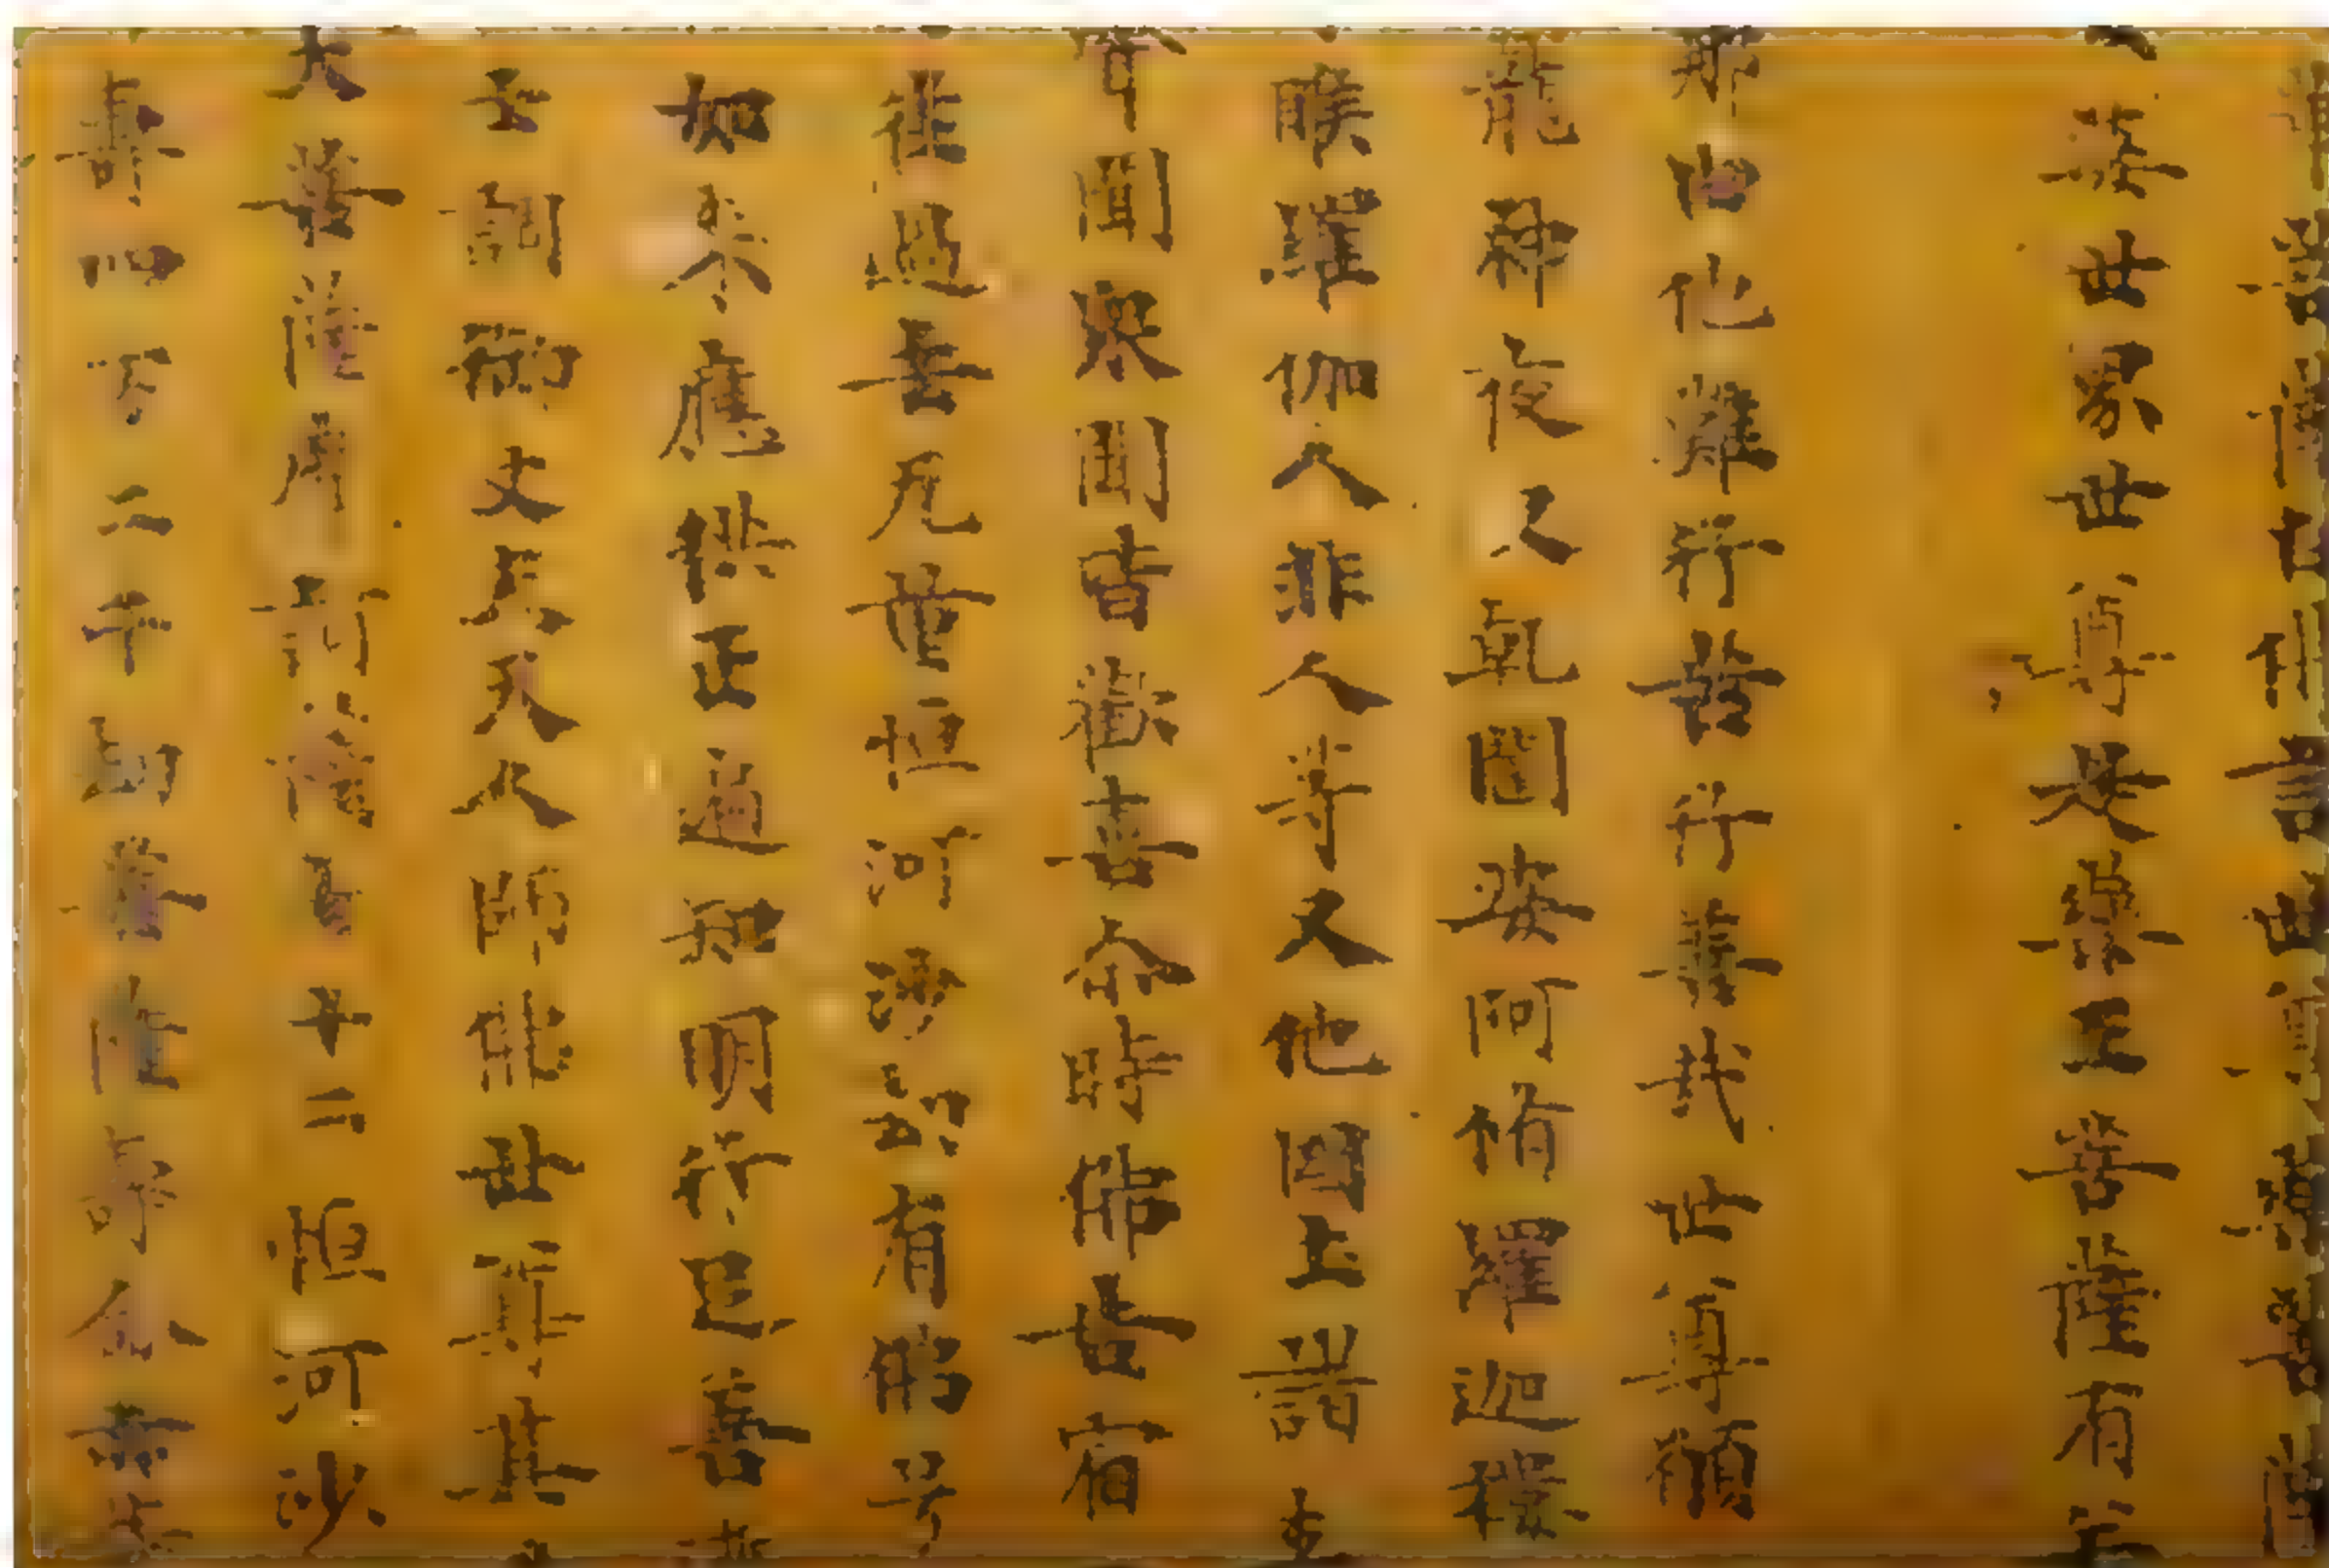 菩薩白佛言世尊
婆世界世尊是藥王菩薩有若
那由他難行苦行善哉世尊願
龍神夜叉乹闥婆阿脩羅迦樓
睺羅伽人非人等又他囯土諸来
聞衆聞皆歡喜尒時佛告宿
往過去无量恒河沙劫有佛号
如来應供正遍知明行足善逝
士調御丈夫天人師佛世尊其
大菩薩摩訶薩七十二恒河沙
壽四万二千劫菩薩壽命亦等